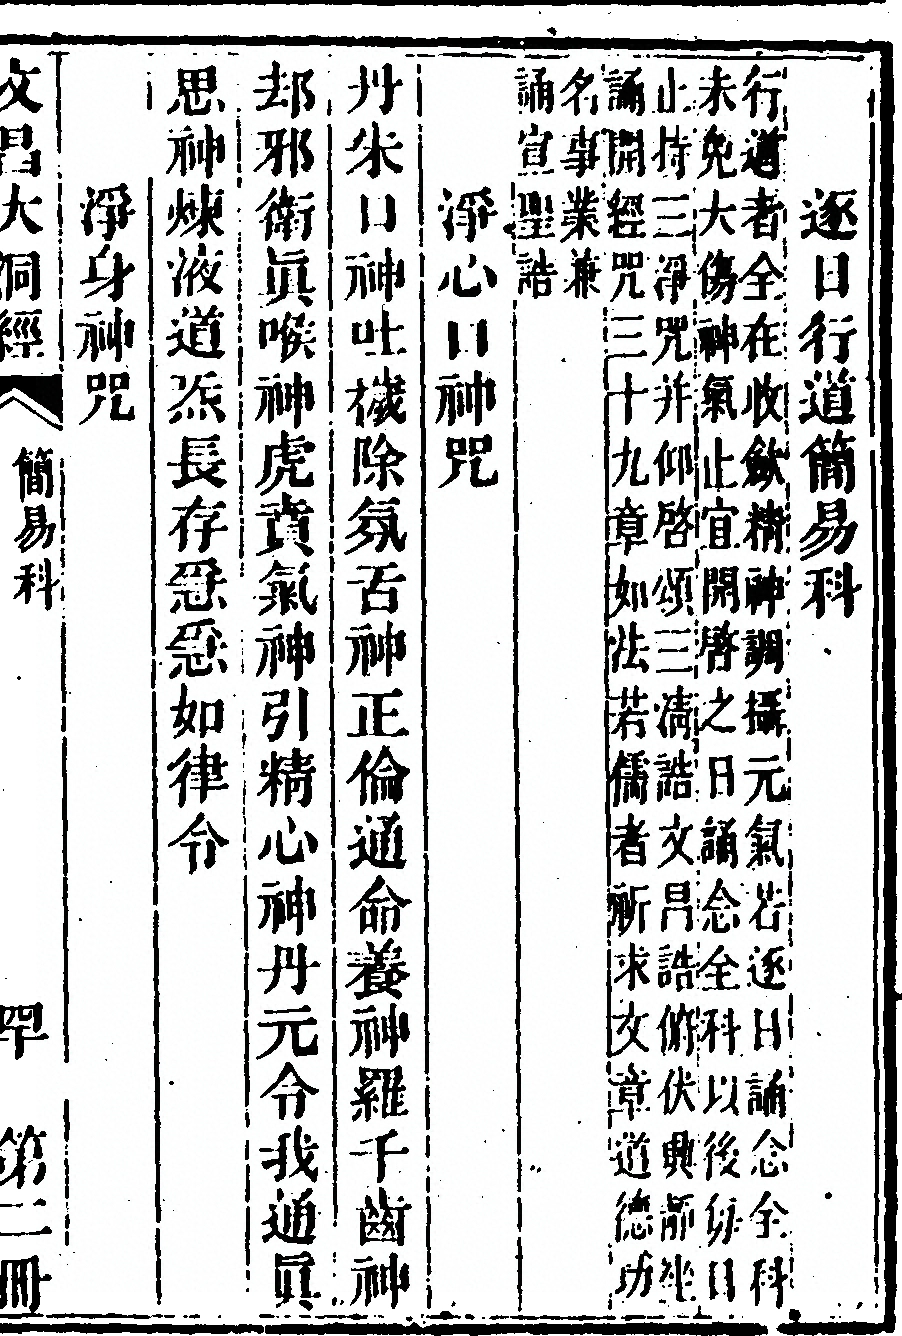 逐日行道簡易科
行道者全在收歛精神調攝元氣若逐日誦念全科
未免大傷神氣止宜開啓之日誦念全科以後每日
止持三淨咒并仰啓頌三淸誥文昌誥俯伏興靜坐
誦開經咒三十九章如法若儒者祈求文章道德功
名事業兼
誦宣聖誥
淨心口神咒
丹朱口神吐穢除氛舌神正倫通命養神羅千齒神
却邪衛眞喉神虎賁氣神引精心神丹元令我通眞
思神煉液道炁長存急急如律令
淨身神咒
文昌大洞經
簡易科
罕
第二冊